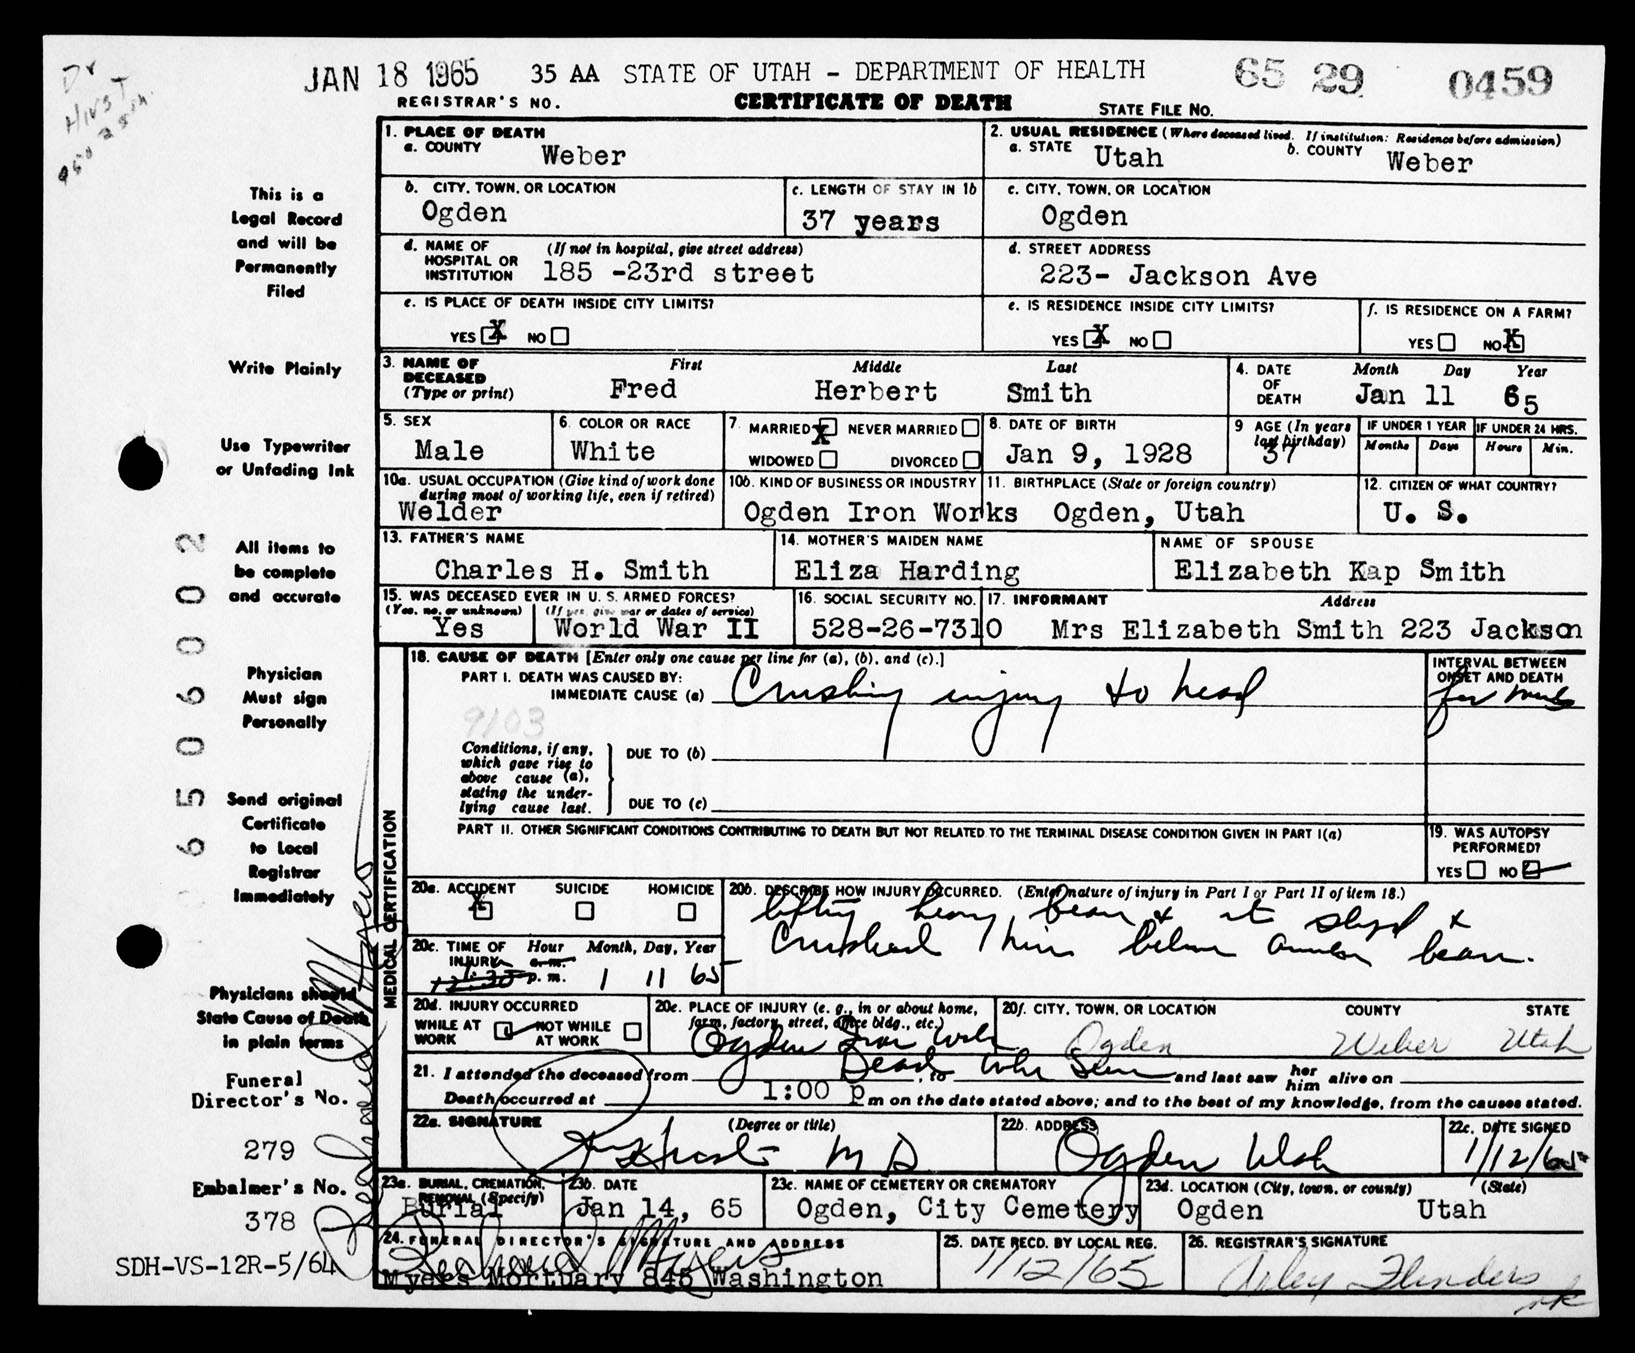 Dr
Hirst
JAN 18 1965 35 AA STATE OF UTAH - DEPARTMENT OF HEALTH 65 29 0459
REGISTRAR'S NO. CERTIFICATE OF DEATH STATE FILE NO.
1. PLACE OF DEATH 2. USUAL RESIDENCE (Where deceased lived. If institution: Residence before admission)
a. COUNTY Weber a. STATE Utah b. COUNTY Weber
This is a
Legal Record
and will be
Permanently
Filed
b. CITY, TOWN, OR LOCATION c. LENGTH OF STAY IN 1b c. CITY, TOWN, OR LOCATION
Ogden 37 years Ogden
d. NAME OF HOSPITAL OR INSTITUTION (If not in hospital, give street address) d. STREET ADDRESS
185 -23rd street 223- Jackson Ave
e. IS PLACE OF DEATH INSIDE CITY LIMITS? e. IS RESIDENCE INSIDE CITY LIMITS? f. IS RESIDENCE ON A FARM?
YES X NO YES X NO YES NO X
Write Plainly
3. NAME OF DECEASED (Type or print) First Middle Last 4. DATE OF DEATH Month Day Year
Fred Herbert Smith Jan 11 65
Use Typewriter
or Unfading Ink
5. SEX 6. COLOR OR RACE 7. MARRIED X NEVER MARRIED 8. DATE OF BIRTH 9 AGE (In years last birthday) IF UNDER 1 YEAR IF UNDER 24 HRS.
Male White WIDOWED DIVORCED Jan 9, 1928 37 Months Days Hours Min.
10a. USUAL OCCUPATION (Give kind of work done during most of working life, even if retired) 10b. KIND OF BUSINESS OR INDUSTRY 11. BIRTHPLACE (State or foreign country) 12. CITIZEN OF WHAT COUNTRY?
Welder Ogden Iron Works Ogden, Utah U. S.
All items to
be complete
and accurate
13. FATHER'S NAME 14. MOTHER'S MAIDEN NAME NAME OF SPOUSE
Charles H. Smith Eliza Harding Elizabeth Kap Smith
15. WAS DECEASED EVER IN U. S. ARMED FORCES? 16. SOCIAL SECURITY NO. 17. INFORMANT Address
(Yes, no, or unknown) (If yes, give war or dates of service)
Yes World War II 528-26-7310 Mrs Elizabeth Smith 223 Jackson
6506002
Physician
Must sign
Personally
18. CAUSE OF DEATH [Enter only one cause per line for (a), (b), and (c).] INTERVAL BETWEEN ONSET AND DEATH
PART I. DEATH WAS CAUSED BY:
IMMEDIATE CAUSE (a) Crushing injury to head
9103
Conditions, if any, which gave rise to above cause (a), stating the underlying cause last.
DUE TO (b)
DUE TO (c)
Send original
Certificate
to Local
Registrar
Immediately
PART II. OTHER SIGNIFICANT CONDITIONS CONTRIBUTING TO DEATH BUT NOT RELATED TO THE TERMINAL DISEASE CONDITION GIVEN IN PART I(a) 19. WAS AUTOPSY PERFORMED?
YES NO
MEDICAL CERTIFICATION
20a. ACCIDENT SUICIDE HOMICIDE 20b. DESCRIBE HOW INJURY OCCURRED. (Enter nature of injury in Part I or Part II of item 18.)
X lifting heavy beam & it slipped &
crushed him below another beam.
20c. TIME OF INJURY Hour Month, Day, Year
a.m. p.m. 1 11 65
Physicians should
State Cause of Death
in plain terms
20d. INJURY OCCURRED 20e. PLACE OF INJURY (e. g., in or about home, farm, factory, street, office bldg., etc.) 20f. CITY, TOWN, OR LOCATION COUNTY STATE
WHILE AT WORK NOT WHILE AT WORK Ogden Iron Wks Ogden Weber Utah
21. I attended the deceased from Dead when Seen, to and last saw her him alive on
Death occurred at 1:00 p m on the date stated above; and to the best of my knowledge, from the causes stated.
Funeral
Director's No.
279
22a. SIGNATURE (Degree or title) 22b. ADDRESS 22c. DATE SIGNED
Hirst M D Ogden Utah 1/12/65
Embalmer's No.
378
23a. BURIAL, CREMATION, REMOVAL (Specify) 23b. DATE 23c. NAME OF CEMETERY OR CREMATORY 23d. LOCATION (City, town, or county) (State)
Burial Jan 14, 65 Ogden, City Cemetery Ogden Utah
24. FUNERAL DIRECTOR'S SIGNATURE AND ADDRESS 25. DATE RECD. BY LOCAL REG. 26. REGISTRAR'S SIGNATURE
Richard Myers 1/12/65 Arley Flinders
Myers Mortuary 845 Washington
Richard Myers
SDH-VS-12R-5/64